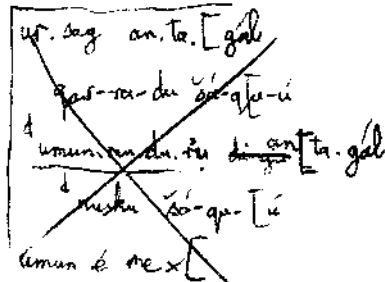 ur.sag an.ta.[gál
qar-ra-du šá-q[u-ú
d umun.mu.du.ru an[ta.gál
d nusku šá-qu-[ú
umun é me x [